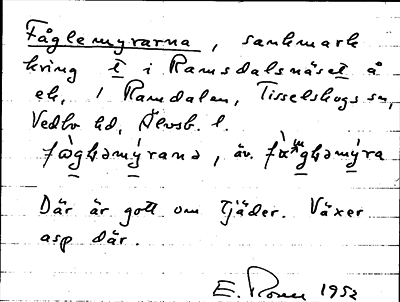 Fåglemyrarna, sankmark
kring t i Ramsdalsnäset å
ek, / Ramdalen, Tisselskogs sn,
Vedbo hd, Älvsb. l.
myrana, äv.
Där är gott om tjäder. Växer
asp där.
E. 1952